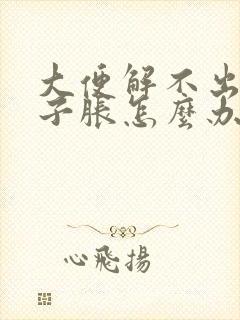 大便解不出
子脹怎麼办
心飛揚